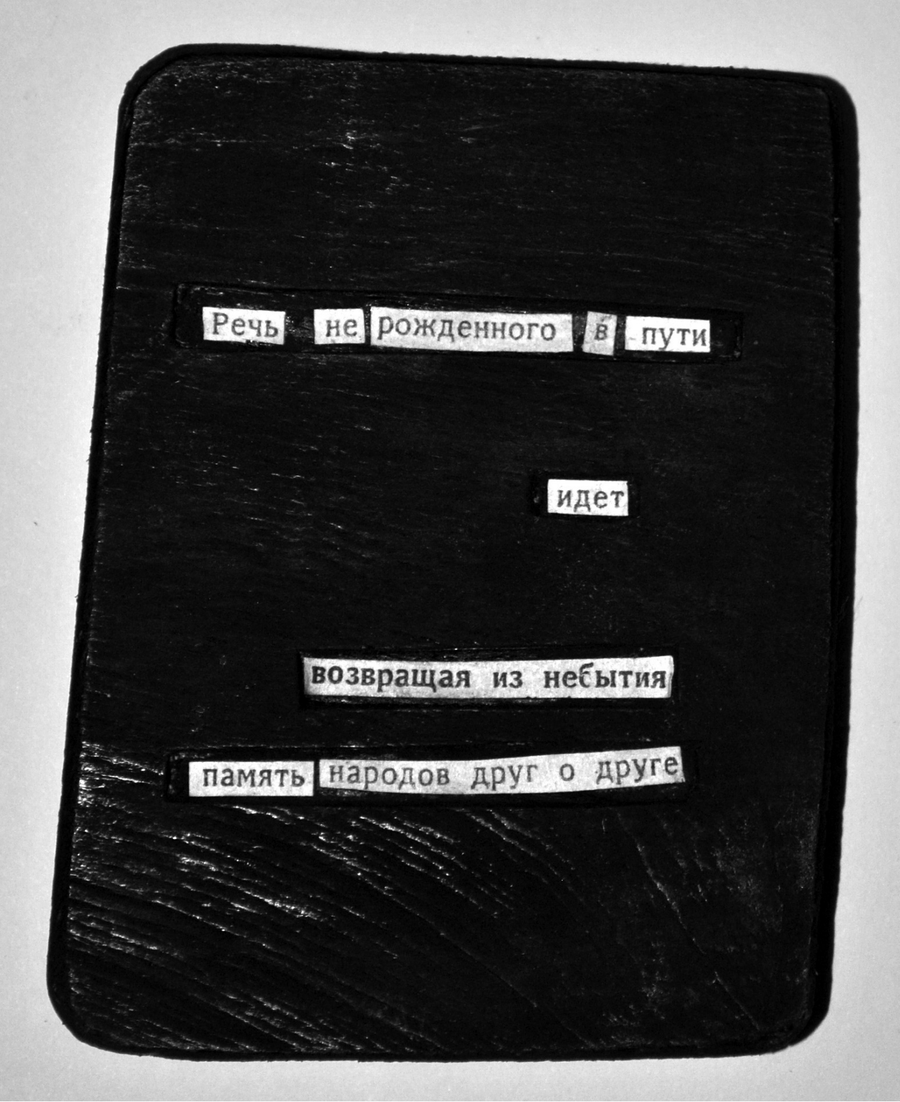 Речь не рожденного в пути
идет
возвращая из небытия
память народов друг о друге